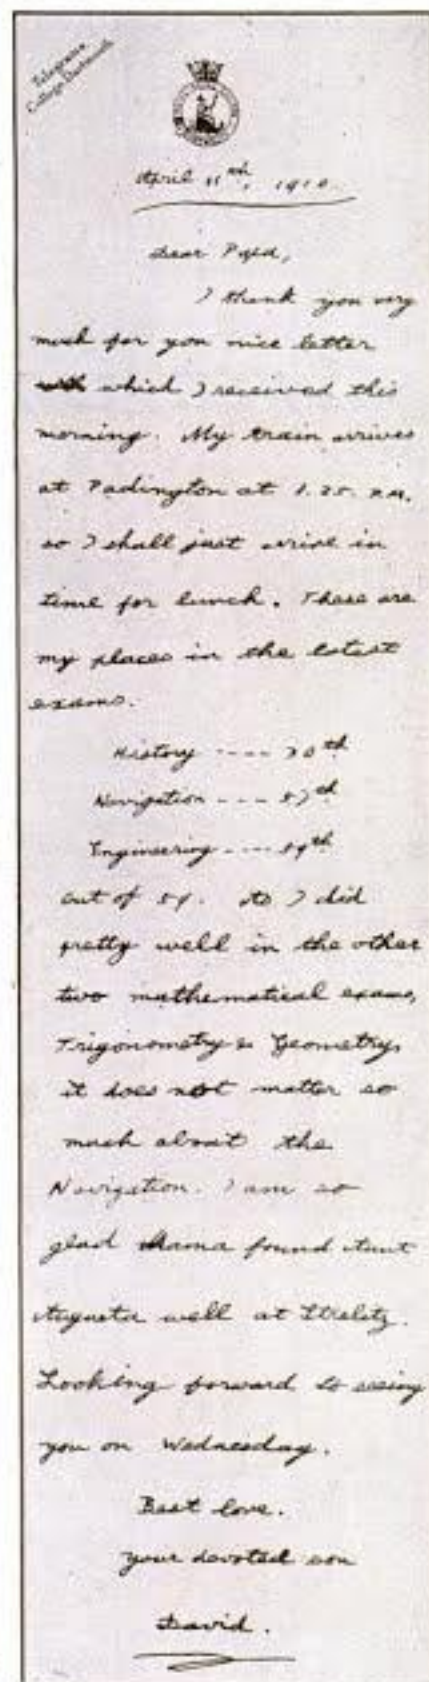 Telegrams
College, Dartmouth
April 11th, 1910.
Dear Papa,
I thank you very
much for you nice letter
which I received this
morning. My train arrives
at Padington at 1.25. P.M.
so I shall just arrive in
time for lunch. These are
my places in the latest
exams.
History ---- 30th
Navigation --- 57th
Engineering ---
out of 59. As I did
pretty well in the other
two mathematical exams,
Trigonometry & Geometry,
it does not matter so
much about the
Navigation. I am so
glad Mama found Aunt
Augusta well at Strelitz.
Looking forward to seeing
you on Wednesday.
Best love.
your devoted son
David.